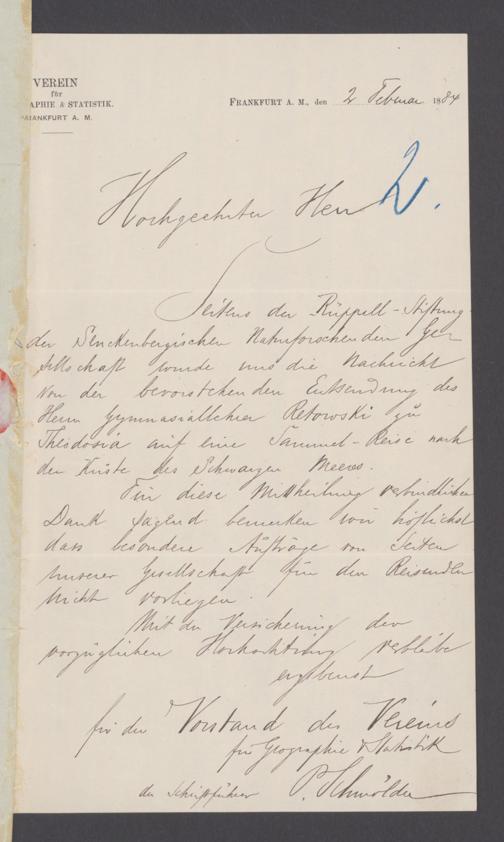 VEREIN
für
APHIE & STATISTIK.
FRANKFURT A. M.
FRANKFURT A. M., den 2 Februar 1884
2.
Hochgeehrter Herr
Seitens der Rüppell-Stiftung
der Senckenbergischen Naturforschenden Ge-
sellschaft wurde uns die Nachricht
von der bevorstehenden Entsendung des
Herrn Gymnasiallehrer Retowski zu
Theodosia auf eine Sammel-Reise nach
den Küste des Schwarzen Meeres.
Für diese Mittheilung verbindlichen
Dank sagend bemerken wir höflichst
dass besondere Aufträge von Seiten
unserer Gesellschaft für den Reisenden
nicht vorliegen.
Mit der Versicherung der
vorzüglichen Hochachtung verbleibe
ergebenst
für den Vorstand des Vereins
für Geographie & Statistik
der Schriftführer P. Schmölder